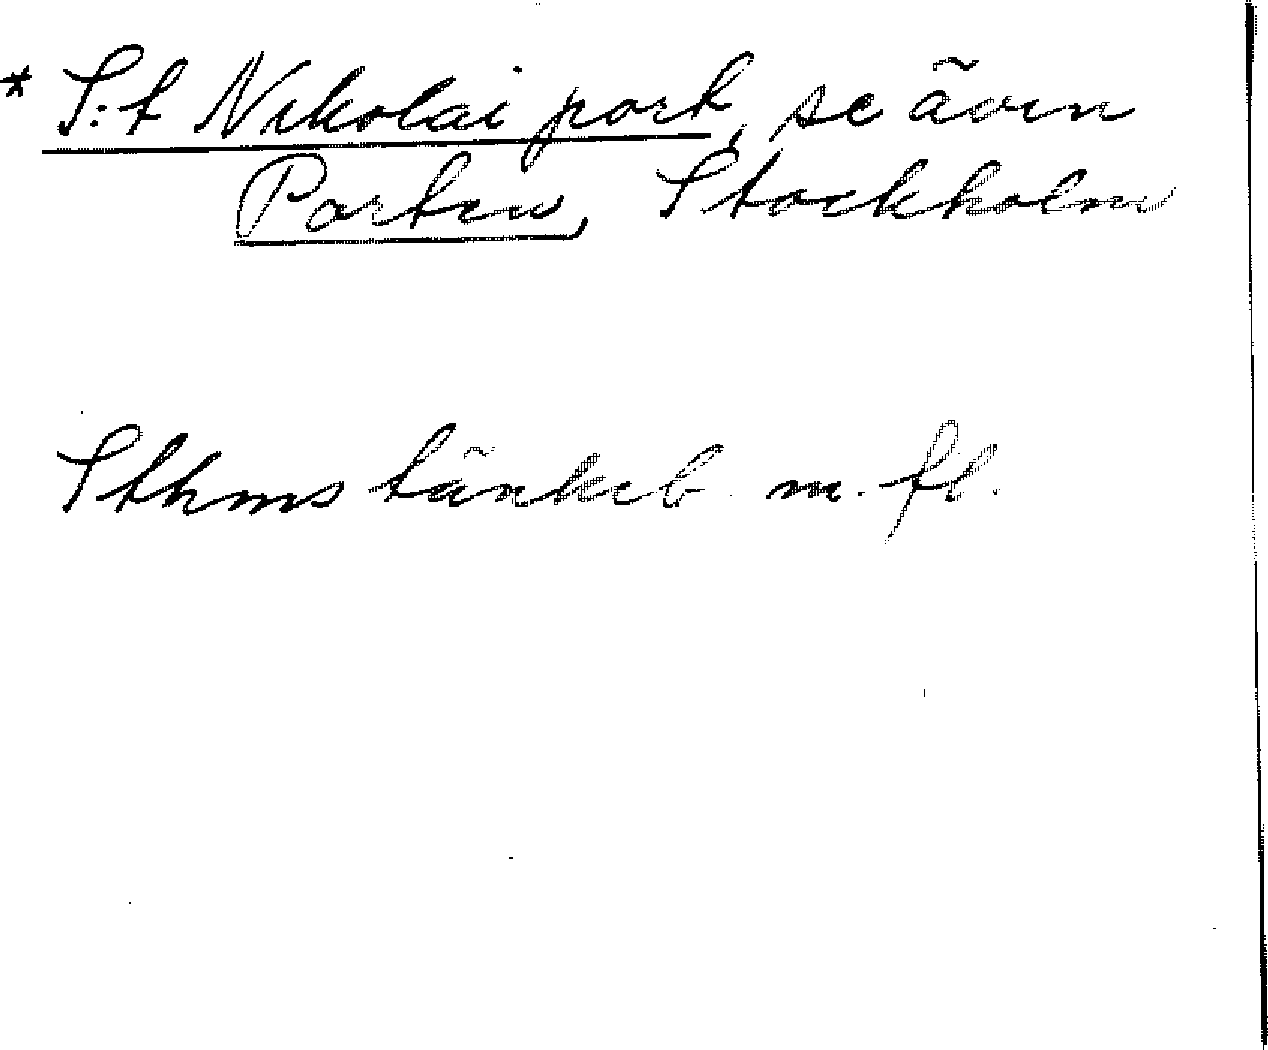 * S:t Nikolai port, se även
Porten, Stockholm
Sthms tänkeb. m. fl.